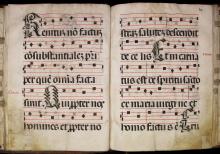 Genitūnō factus
cōsubstātialē pri
per quē omīa facta
sunt. Qui ppter nos
homines et ppter no
strā salutē descendit
de ce lis Et incarna
tus est de spiritu sācto
ex maria virgi ne et
homo factus est